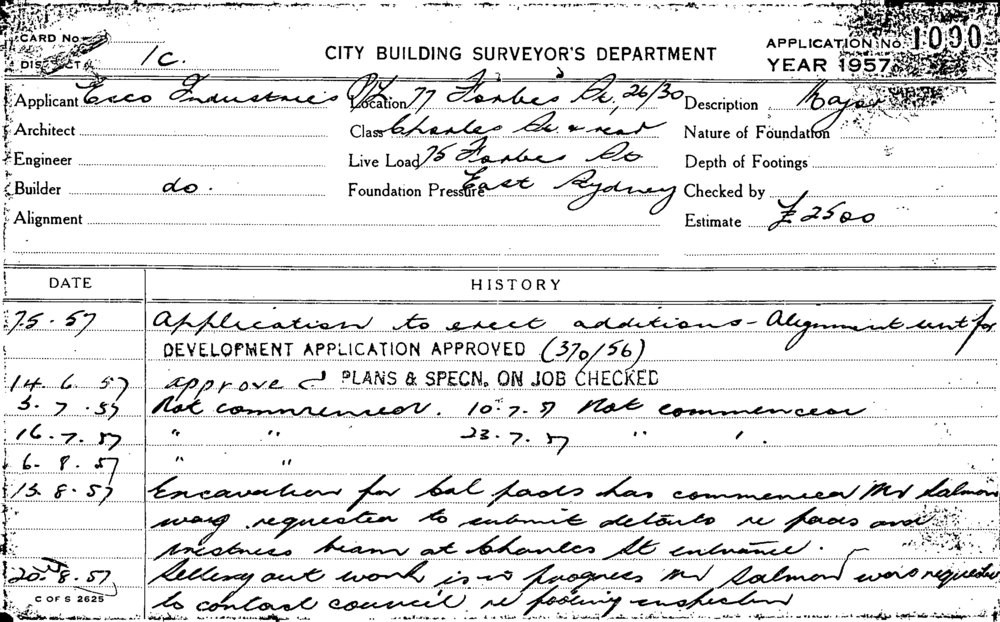 CARD No
DISTCT 1C.
CITY BUILDING SURVEYOR'S DEPARTMENT
APPLICATION No. 1090
YEAR 1957
Applicant Esco Industries P/L Location 77 Forbes St, 26/30 Description Major
Architect Class Charles St. & rear Nature of Foundation
Engineer Live Load 75 Forbes St Depth of Footings
Builder do. Foundation Pressure East Sydney Checked by
Alignment Estimate £2500
DATE HISTORY
7.5.57 Application to erect additions - Alignment
DEVELOPMENT APPLICATION APPROVED (370/56)
14.6.57 approved PLANS & SPECN. ON JOB CHECKED
3.7.57 Not commenced. 10.7.57 Not commenced
16.7.57 " " 23.7.57 " " .
6.8.57 " "
13.8.57 Excavation for col pads has commenced Mr Salmon
was requested to submit details re pads and
beam at Charles St entrance.
20.8.57 out work is in progress Mr Salmon was requested
to contact council re footing inspection
C OF S 2625